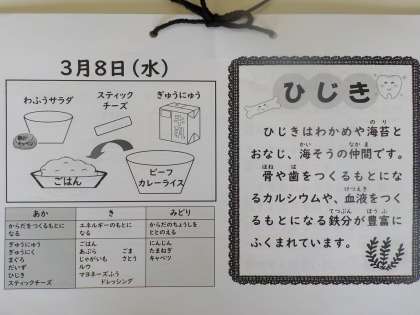 3月8日(水)
わふうサラダ
スティック
チーズ
ぎゅうにゅう
牛乳
キャベツ
ごはん
ビーフ
カレーライス
あか
き
みどり
からだをつくるもとに
なる
エネルギーのもとに
なる
からだのちょうしを
ととのえる
ぎゅうにゅう
ぎゅうにく
まぐろ
だいず
ひじき
スティックチーズ
ごはん
あぶら ごま
じゃがいも さとう
ルウ
マヨネーズふう
ドレッシング
にんじん
たまねぎ
キャベツ
ひじき
ひじきはわかめや海苔と
のり
おなじ、海そうの仲間です。
かい なかま
骨や歯をつくるもとにな
ほね は
るカルシウムや、血液をつく
けつえき
るもとになる鉄分が豊富に
てつぶん ほうふ
ふくまれています。